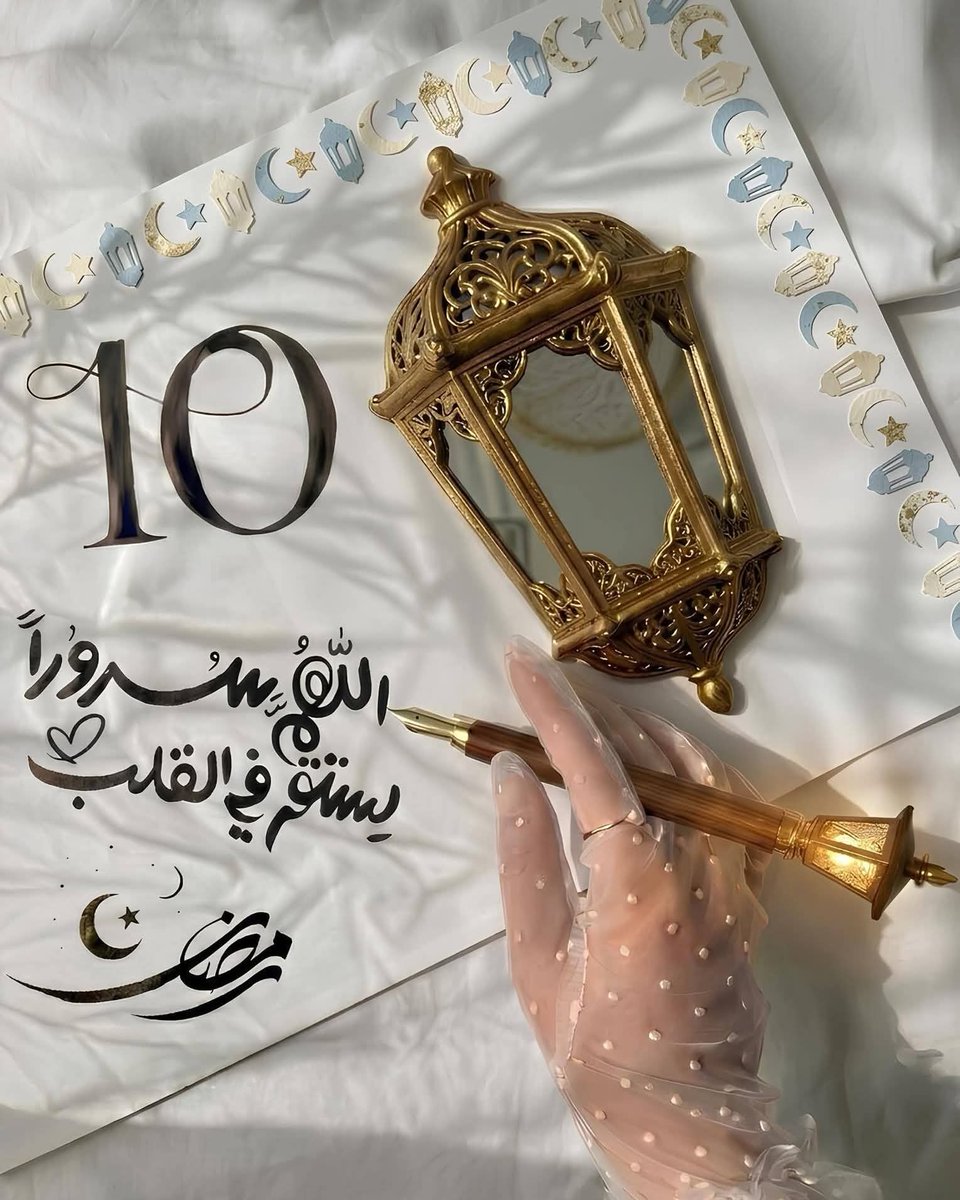 10
اللهُمَّ سُروُراً
يستقر في القلب
رمضان